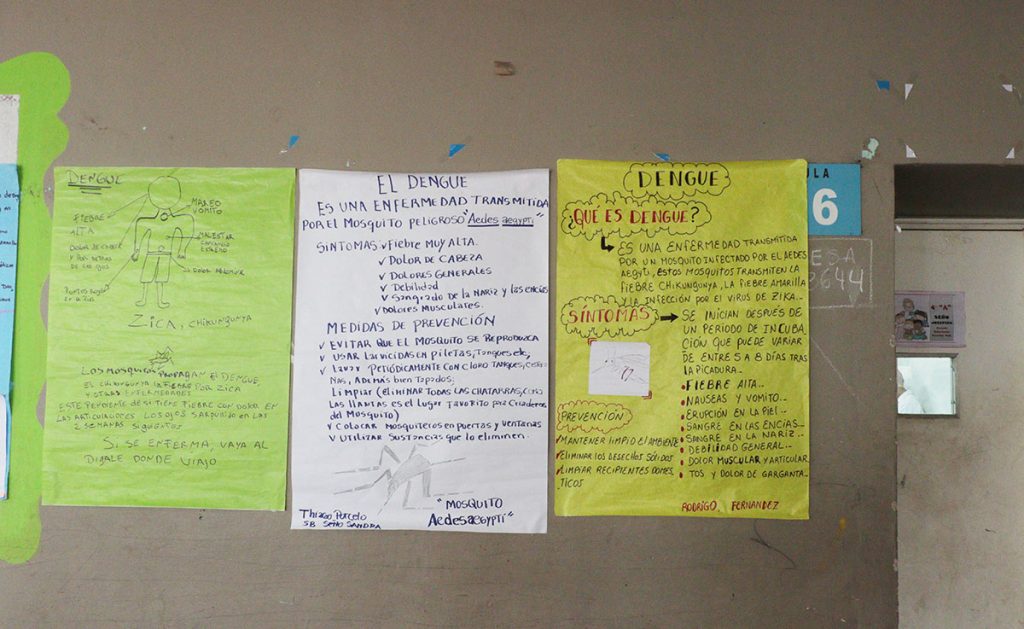 DENGUE
MAREO
VOMITO
FIEBRE
ALTA
MALESTAR
DOLOR DE CABEZA
Y POR DETRAS
DE LOS OJOS
DOLOR
ZICA, CHIKUNGUNYA
LOS MOSQUITOS PROPAGAN EL DENGUE
EL CHIKUNGUNYA LA FIEBRE POR ZICA
Y OTRAS ENFERMEDADES
ESTE PENDIENTE DE SI TIENE FIEBRE CON DOLOR EN
LAS ARTICULACIONES LOS OJOS SARPULLIDO EN LAS
2 SEMANAS
SI SE ENFERMA, VAYA AL
DIGALE DONDE VIAJO
EL DENGUE
ES UNA ENFERMEDAD TRANSMITIDA
POR EL MOSQUITO PELIGROSO "Aedes aegypti"
SINTOMAS ✓ FIEBRE MUY ALTA.
✓ DOLOR DE CABEZA
✓ DOLORES GENERALES
✓ Debilidad
✓ Sangrado de la NARIZ y las encías
✓ DOLORES MUSCULARES.
MEDIDAS DE PREVENCIÓN
✓ EVITAR QUE EL MOSQUITO SE REPRODUZCA
✓ USAR Larvicidas en piletas, Tanques etc,
✓ Lavar PERIÓDICAMENTE CON CLORO TANQUES,
Nas, Además bien Tapados;
Limpiar (eliminar TODAS LAS CHATARRAS, como
Las llantas es el lugar favorito por Criaderos
del Mosquito)
✓ Colocar Mosquiteros en puertas y ventanas
✓ Utilizar Sustancias que lo eliminen.
"MOSQUITO
Aedes aegypti"
Thiago Porcelo
5B SEÑO SANDRA
DENGUE
¿QUÉ ES DENGUE?
ES UNA ENFERMEDAD TRANSMITIDA
POR UN MOSQUITO INFECTADO POR EL AEDES
Aegyti, ESTOS MOSQUITOS TRANSMITEN LA
FIEBRE CHIKUNGUNYA, LA FIEBRE AMARILLA
Y LA INFECCIÓN POR EL VIRUS DE ZIKA..
SÍNTOMAS
SE INICIAN DESPUES DE
UN PERIODO DE INCUBA
CIÓN QUE PUEDE VARIAR
DE ENTRE 5 A 8 DÍAS TRAS
LA PICADURA..
• FIEBRE ALTA..
• NAUSEAS Y VOMITO..
• ERUPCIÓN EN LA PIEL..
• SANGRE EN LAS ENCÍAS..
• SANGRE EN LA NARIZ..
• DEBILIDAD GENERAL..
• DOLOR MUSCULAR Y ARTICULAR
• TOS Y DOLOR DE GARGANTA.
PREVENCIÓN
✓ MANTENER LIMPIO EL AMBIENTE
✓ ELIMINAR LOS DESECHOS SÓLIDOS
✓ LIMPIAR RECIPIENTES DOMES
TICOS
RODRIGO FERNANDEZ
ULA
6
ESA
3644
4º "A"
SEÑO